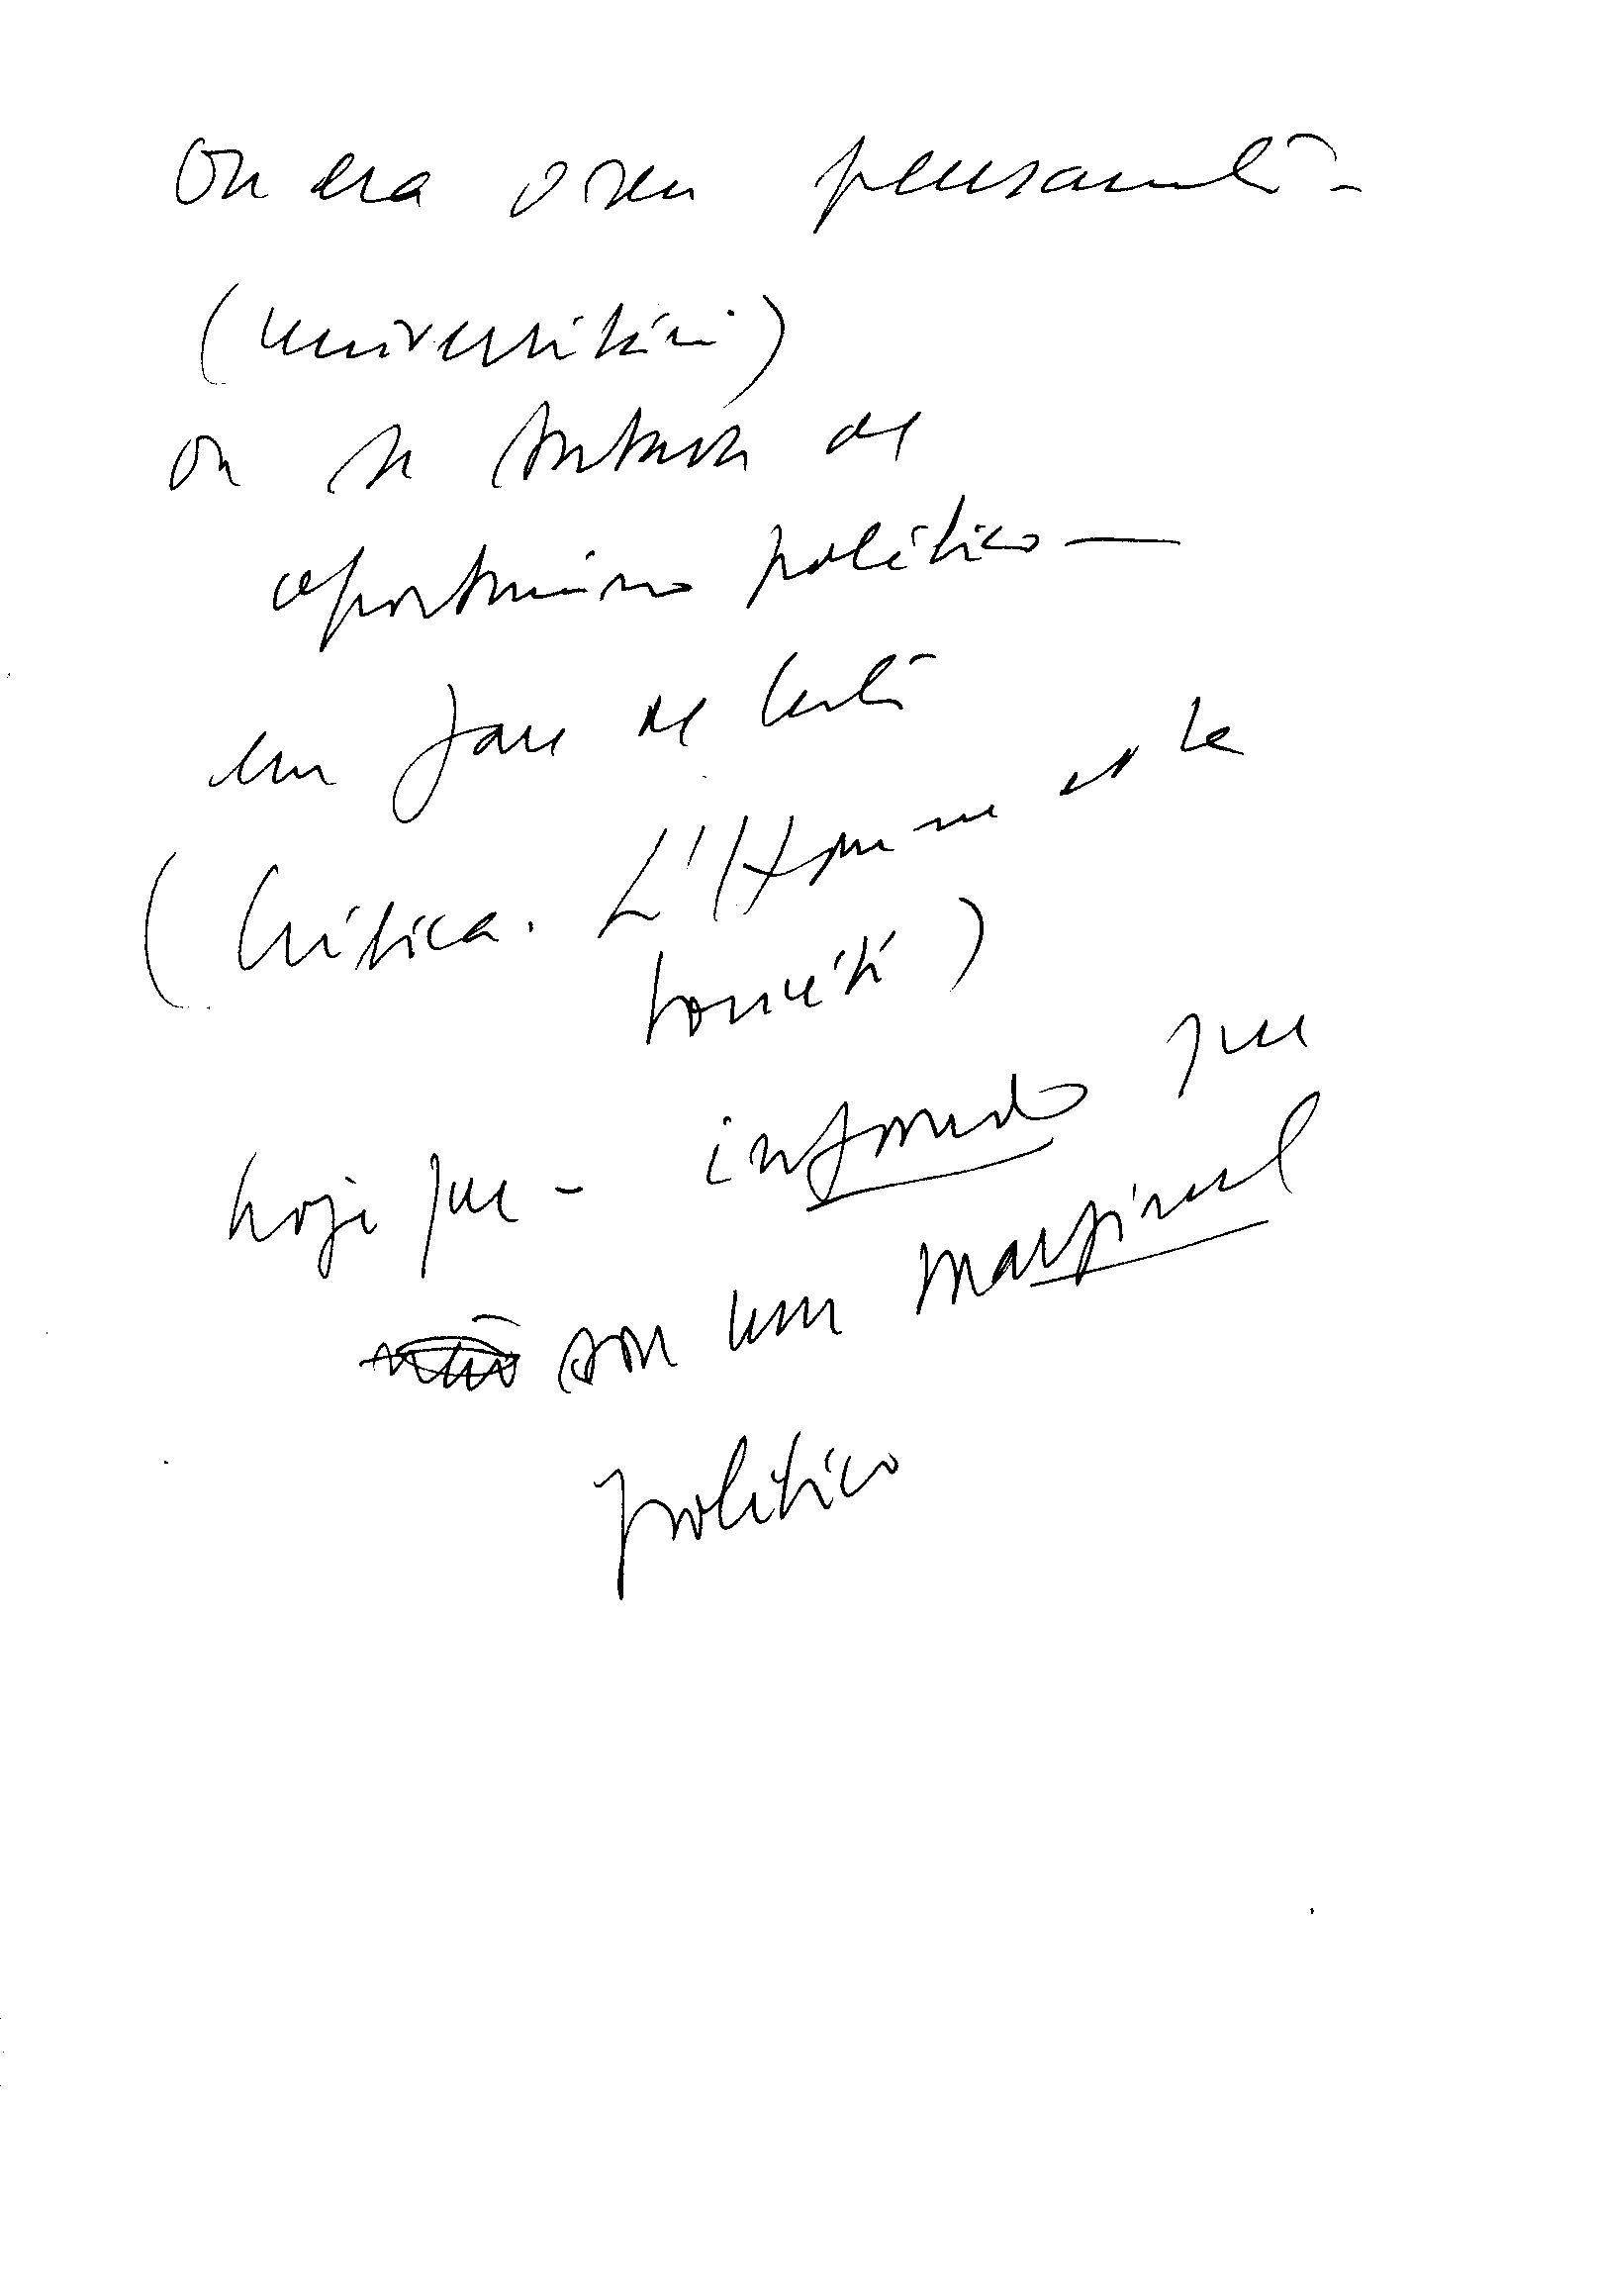 Ou era o seu pensamento -
(universitário)
ou se tratava de
oportunismo político —
em face de
(Crítica. L'Homme et la
Société)
hoje que - informado que
não sou um marginal
político